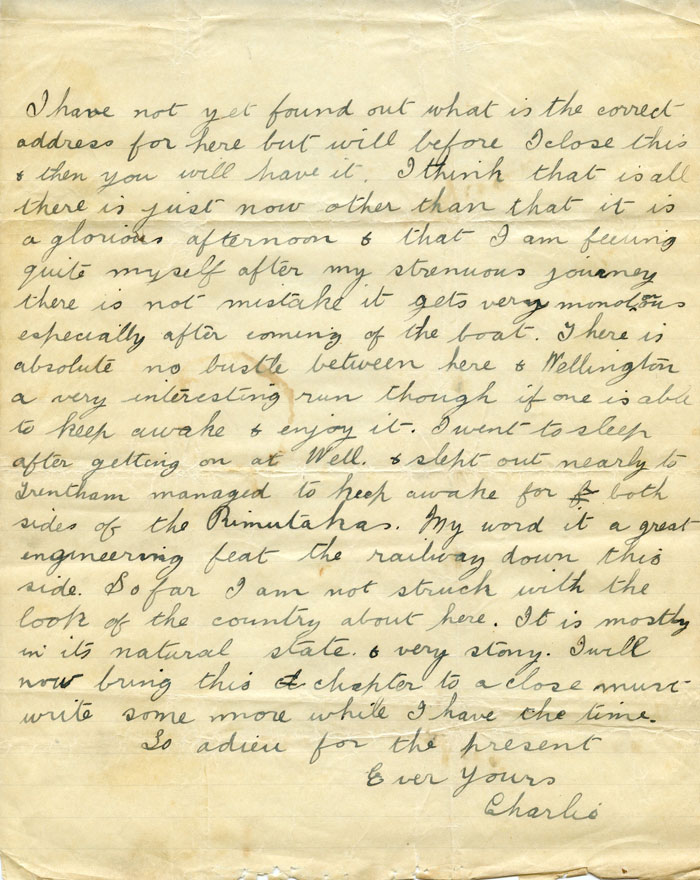 I have not yet found out what is the correct
address for here but will before I close this
& then you will have it. I think that is all
there is just now other than that it is
a glorious afternoon & that I am feeling
quite myself after my strenuous journey
there is not mistake it gets very monotonous
especially after coming of the boat. There is
absolute no bustle between here & Wellington
a very interesting run though if one is able
to keep awake & enjoy it. I went to sleep
after getting on at Well. & slept out nearly to
Trentham managed to keep awake for both
sides of the Rimutakas. My word it a great
engineering feat the railway down this
side. So far I am not struck with the
look of the country about here. It is mostly
in its natural state. & very stony. I will
now bring this chapter to a close must
write some more while I have the time.
So adieu for the present
Ever Yours
Charlie